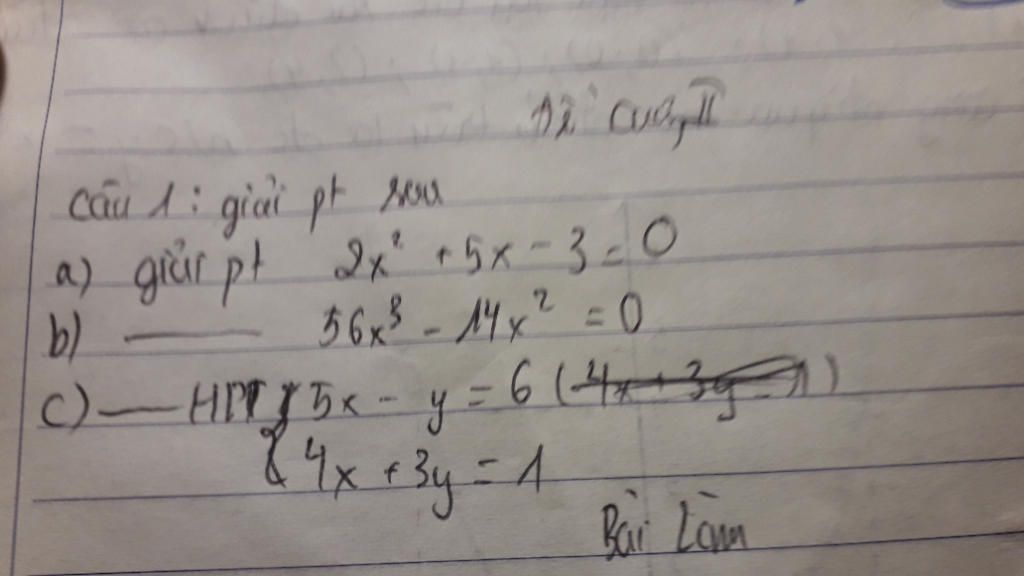 Đề cương II
Câu 1: giải pt sau
a) giải pt 2x² + 5x - 3 = 0
b) —— 56x³ - 14x² = 0
c) —— HPT { 5x - y = 6 (4x + 3y = 1)
{ 4x + 3y = 1
Bài Làm